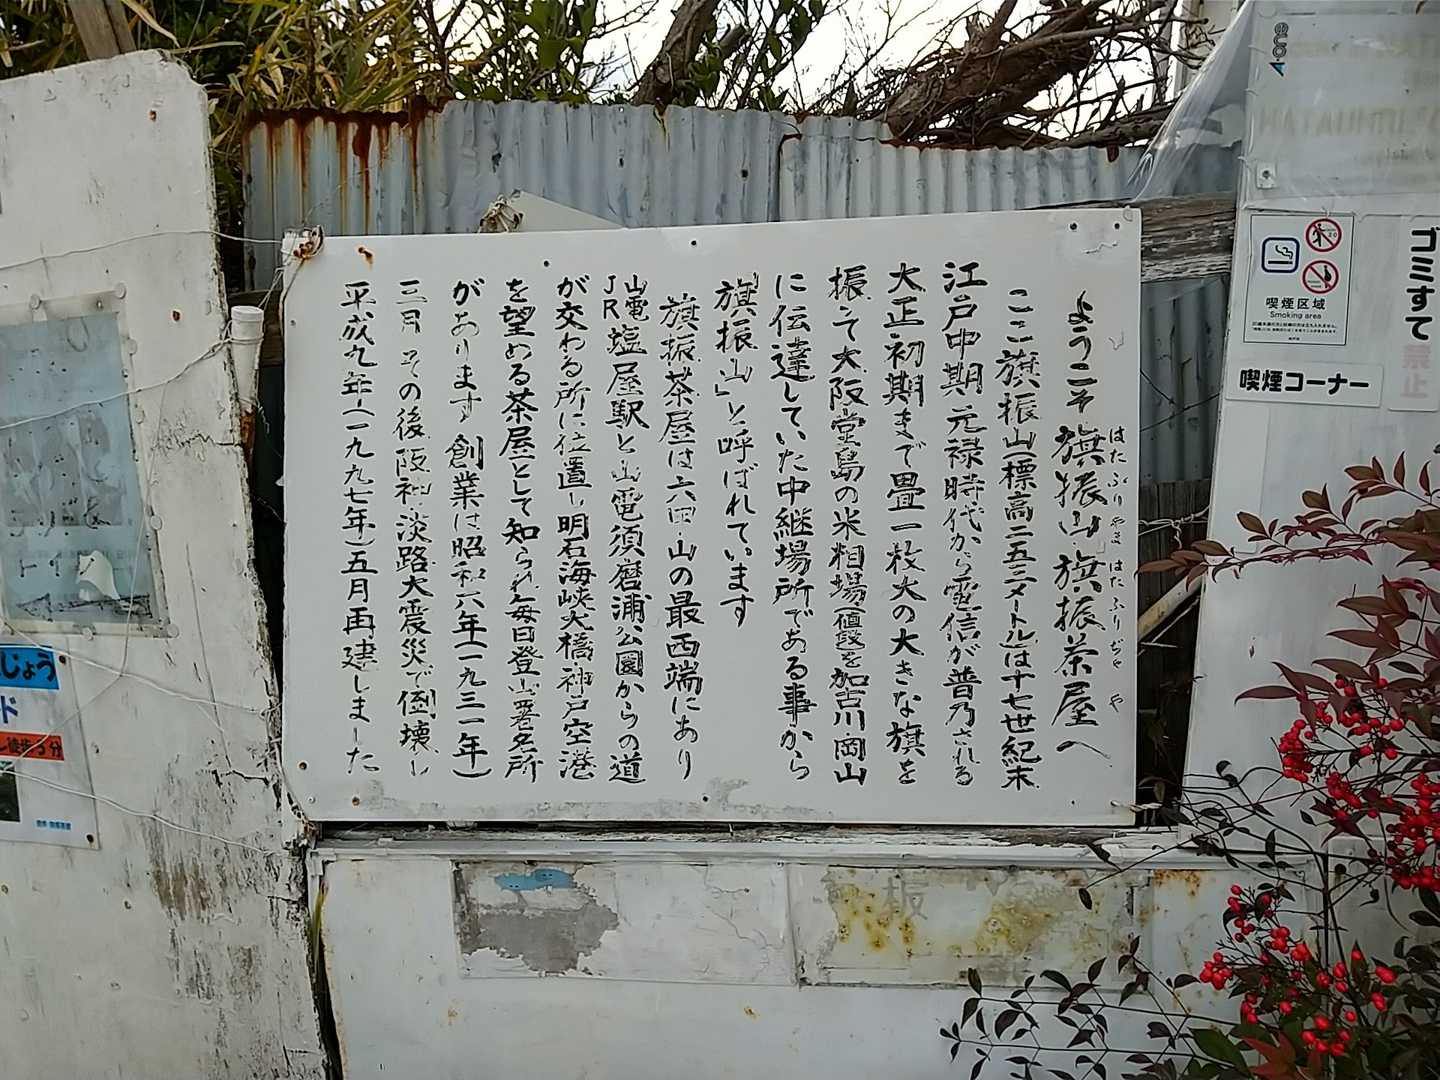 ようこそ旗振山 旗振茶屋へ
はたふりやま はたふりぢゃや
ここ旗振山(標高二五三メートル)は十七世紀末
江戸中期元禄時代から電信が普及される
大正初期まで畳一枚大の大きな旗を
振って大阪堂島の米相場(値段)を加古川・岡山
に伝達していた中継場所である事から
「旗振山」と呼ばれています
旗振茶屋は六甲山の最西端にあり
山電JR塩屋駅と山電須磨浦公園からの道
が交わる所に位置し明石海峡大橋・神戸空港
を望める茶屋として知られ毎日登山署名所
があります 創業は昭和六年(一九三一年)
三月 その後阪神・淡路大震災で倒壊し
平成九年(一九九七年)五月再建しました
喫煙区域
Smoking area
喫煙コーナー
ゴミすて
禁止
じょう
ド